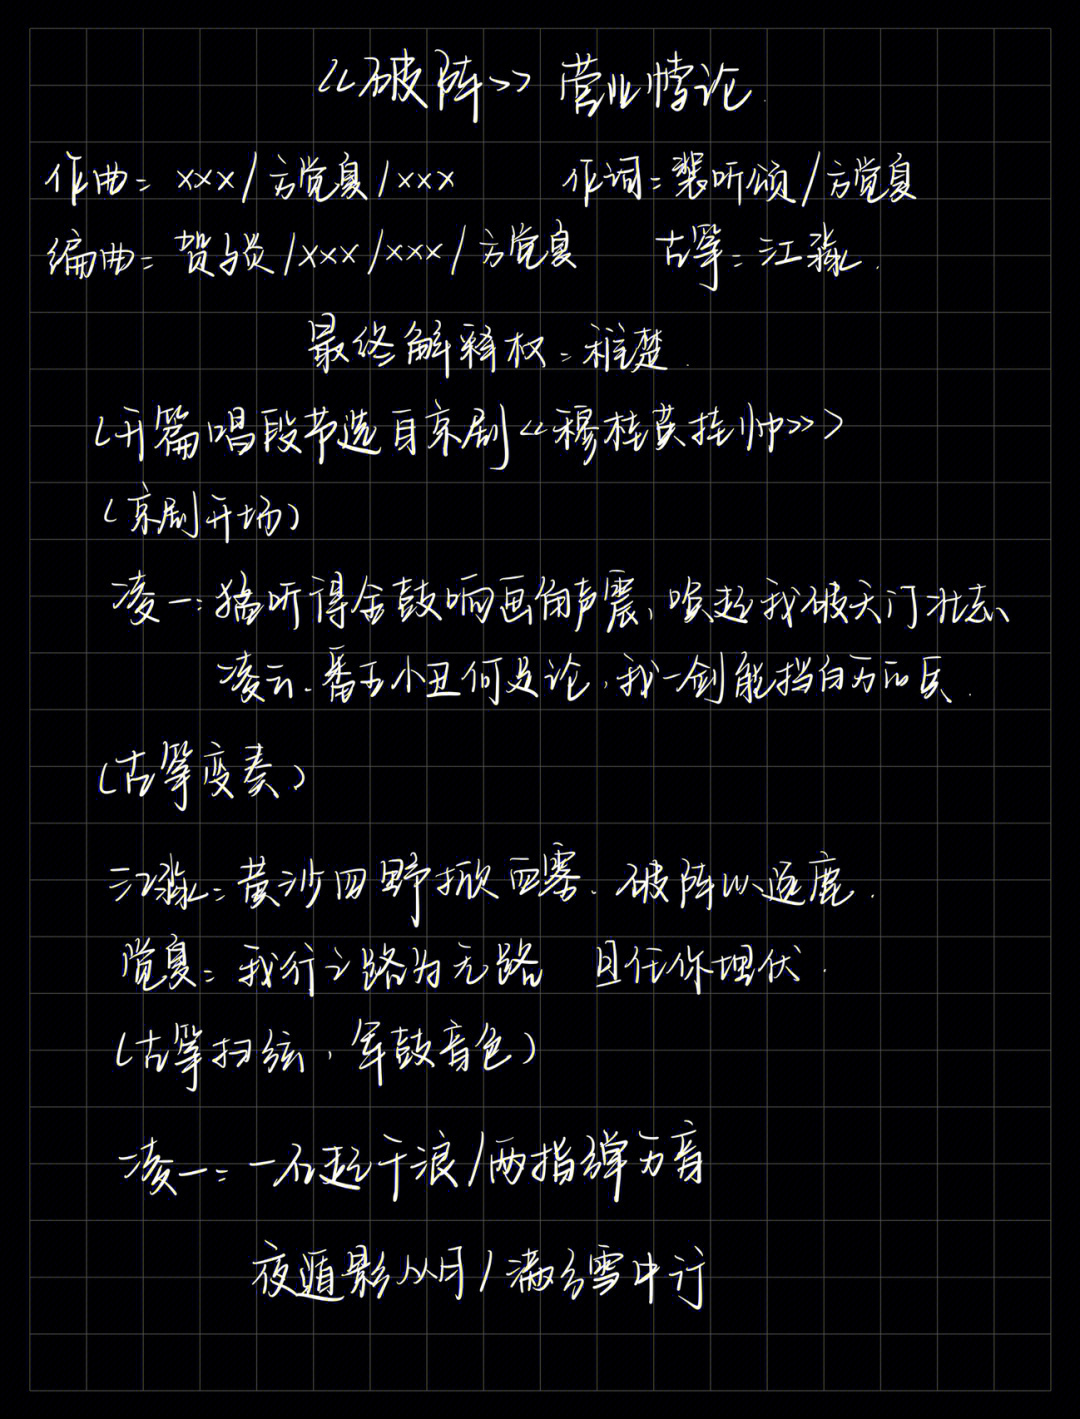 《破阵》 营业悖论.
作曲：xxx/方觉夏/xxx 作词：裴听颂/方觉夏
编曲：贺子炎/xxx/xxx/方觉夏 古筝：江淼.
最终解释权：稚楚.
(开篇唱段节选自京剧《穆桂英挂帅》)
(京剧开场)
凌一：猛听得金鼓响画角声震，唤起我破天门壮志
凌云.番王小丑何足论，我一剑能挡百万的兵.
(古筝变奏)
江淼：黄沙四野掀血雾.破阵以逐鹿.
觉夏：我行之路为无路 且任你埋伏.
(古筝扫弦，军鼓音色)
凌一：一石起千浪/两指弹万音
夜遁影从月/满弓雪中行